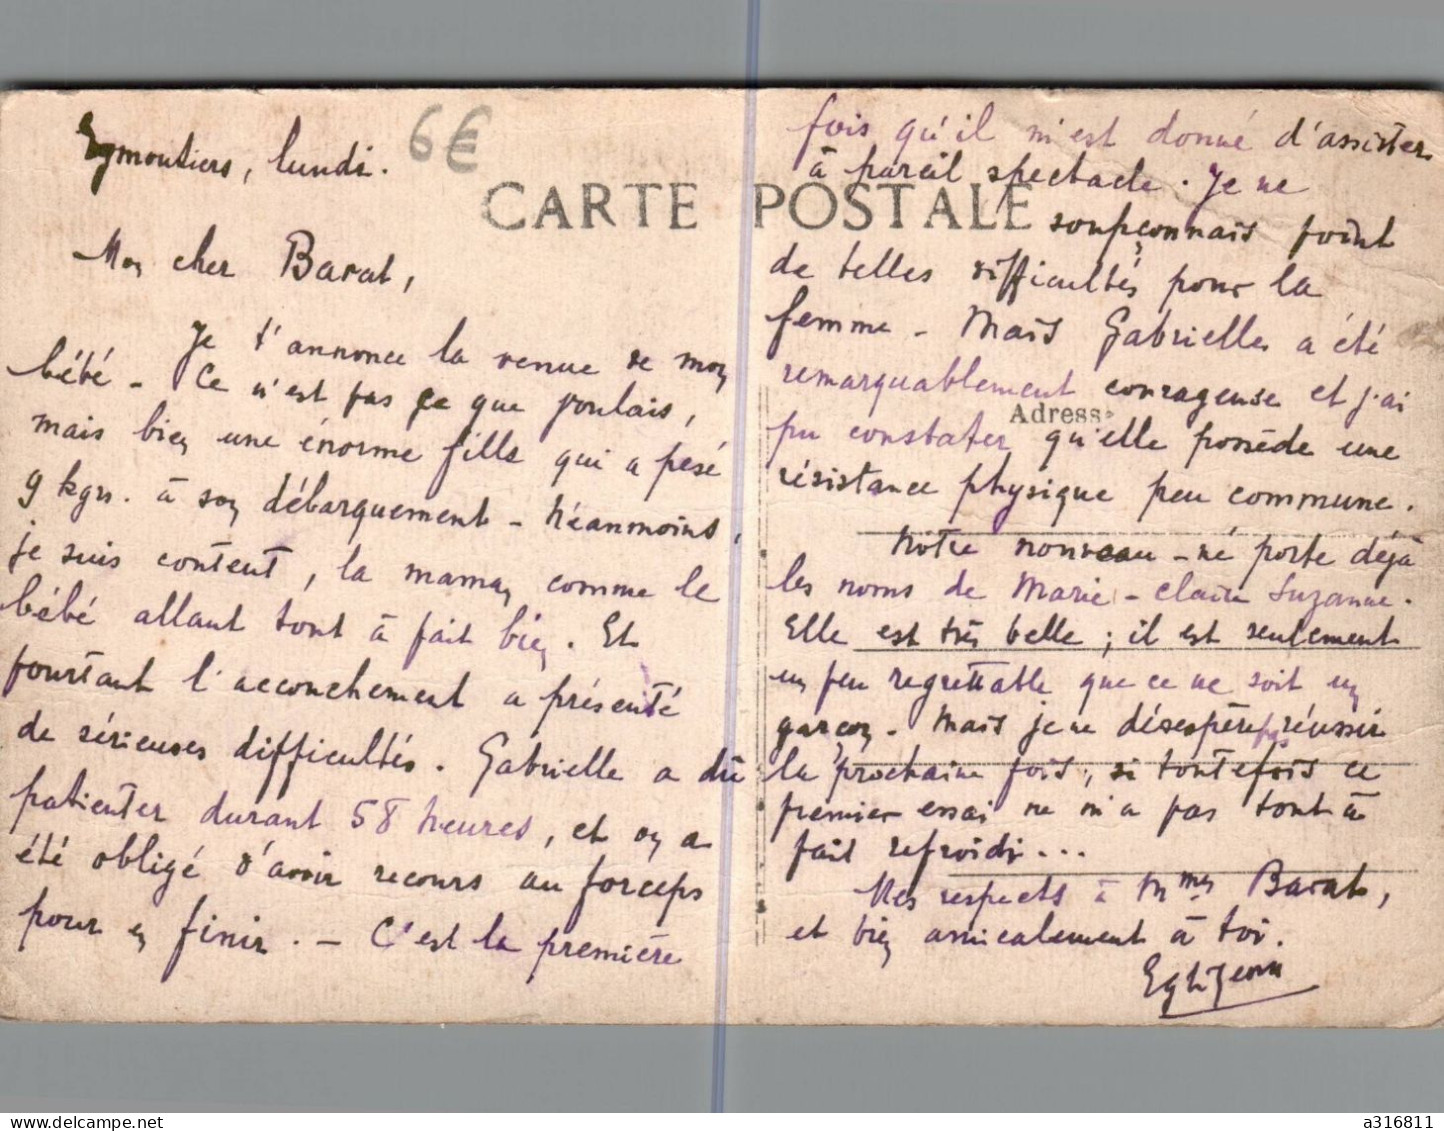 Eymoutiers, lundi.
6€
CARTE POSTALE
Mon cher Barat,
Je t'annonce la venue de mon
bébé - Ce n'est pas ce que voulais,
mais bien une énorme fille qui a pesé
9 kgrs. à son débarquement - Néanmoins,
je suis content, la maman comme le
bébé allant tout à fait bien. Et
pourtant l'accouchement a présenté
de sérieuses difficultés. Gabrielle a dû
patienter durant 58 heures, et on a
été obligé d'avoir recours au forceps
pour en finir. - C'est la première
fois qu'il m'est donné d'assister
à pareil spectacle. Je ne
soupçonnais point
de telles difficultés pour la
femme - Mais Gabrielle a été
remarquablement courageuse et j'ai
Adresse
pu constater qu'elle possède une
résistance physique peu commune.
Notre nouveau-né porte déjà
les noms de Marie-Claire Suzanne.
Elle est très belle ; il est seulement
un peu regrettable que ce ne soit un
garçon. Mais je ne désespère pas réussir
la prochaine fois, si toutefois ce
premier essai ne m'a pas tout à
fait refroidi...
Mes respects à Mmes Barat,
et bien amicalement à toi.
delcampe.net
a316811